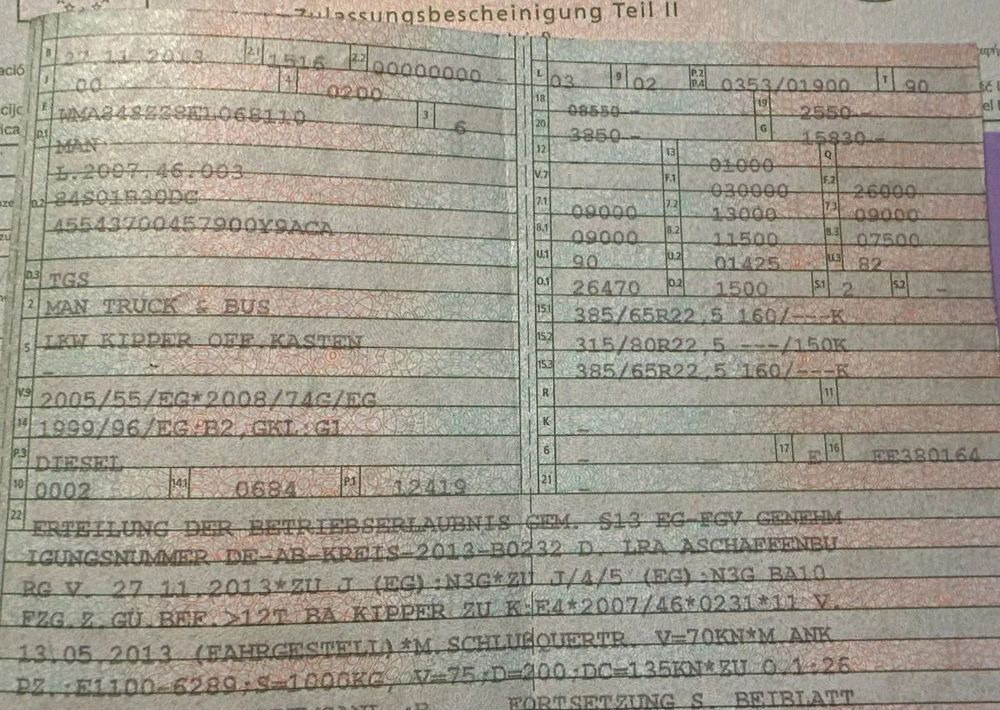 Zulassungsbescheinigung Teil II
B 27.11.2013 2.1 1516 2.2 00000000 -
J 00 4 0200
E WMA84SZZ8E1068110 3 6
D.1 MAN
D.2 L.2007.46.003
84S01B30DG
45543700457900Y9ACA
D.3 TGS
2 MAN TRUCK & BUS
5 LKW KIPPER OFF.KASTEN
-
V.9 2005/55/EG*2008/74G/EG
14 1999/96/EG.B2,GKL:G1
P.3 DIESEL
10 0002 14.1 0684 P.1 12419
L 03 9 02 P.2 P.4 0353/01900 T 90
18 08550 - 19 2550 -
20 3850 - G 15830 -
12 13 01000 Q
V.7 F.1 030000 F.2 26000
7.1 09000 7.2 13000 7.3 09000
8.1 09000 8.2 11500 8.3 07500
U.1 90 U.2 01425 U.3 82
O.1 26470 O.2 1500 S.1 2 S.2 -
15.1 385/65R22,5 160/---K
15.2 315/80R22,5 ---/150K
15.3 385/65R22,5 160/---K
R 11
K -
6 - 17 E 16 EE380164
21 -
22 ERTEILUNG DER BETRIEBSERLAUBNIS GEM. §13 EG-FGV GENEHM
IGUNGSNUMMER DE-AB-KREIS-2013-B0232 D. LRA ASCHAFFENBU
RG V. 27.11.2013*ZU J (EG):N3G*ZU J/4/5 (EG):N3G BA10
FZG.Z.GÜ.BEF.>12T BA KIPPER ZU K:E4*2007/46*0231*11 V.
13.05.2013 (FAHRGESTELL)*M.SCHLUßQUERTR. V=70KN*M ANK
PZ.:E1100-6289:S=1000KG, V=75:D=200:DC=135KN*ZU O.1:26
FORTSETZUNG S. BEIBLATT